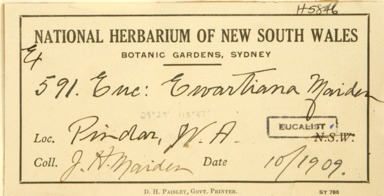 H5846
NATIONAL HERBARIUM OF NEW SOUTH WALES
BOTANIC GARDENS, SYDNEY
Ex
591. Euc: Ewartiana Maiden
Loc. Pindar, W.A. N.S.W.
EUCALIST
Coll. J. H. Maiden Date 10/1909.
D. H. PAISLEY, GOVT. PRINTER. ST 788